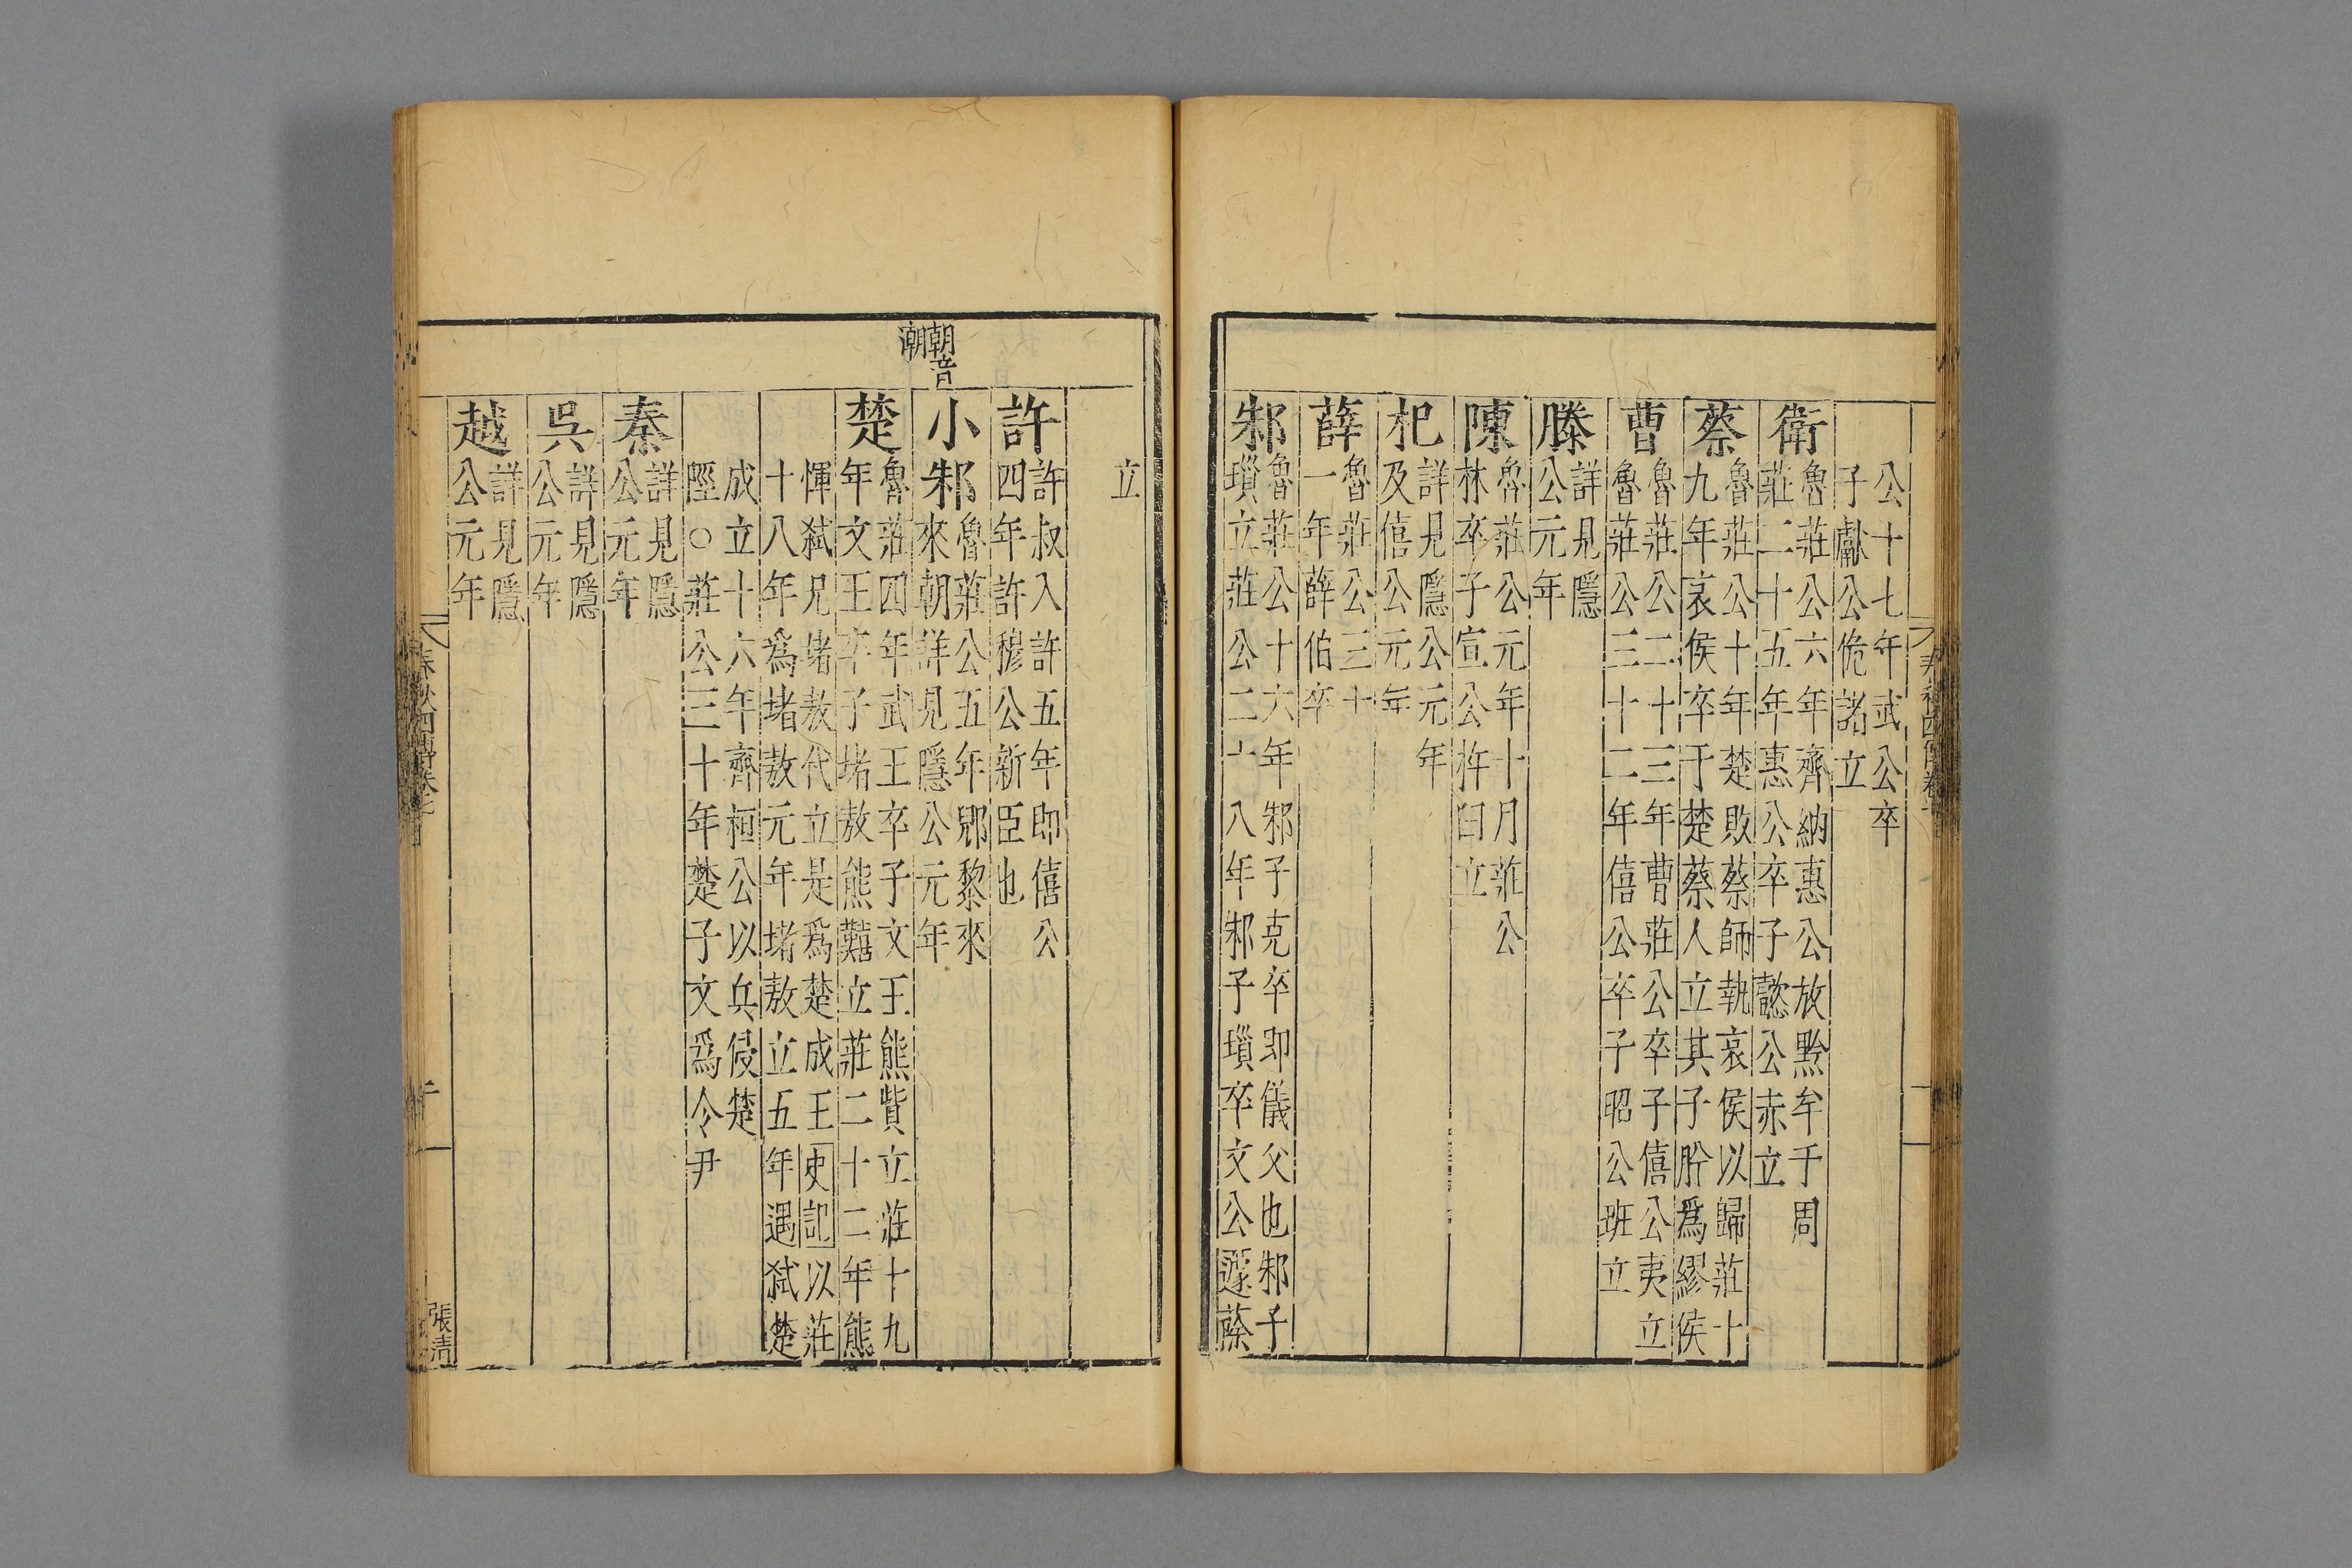 公十七年武公卒
子獻公佹諸立
衛
魯莊公六年齊納惠公放黔牟于周
莊二十五年惠公卒子懿公赤立
蔡
魯莊公十年楚敗蔡師執哀侯以歸莊十
九年哀侯卒于楚蔡人立其子肸爲繆侯
曹
魯莊公二十三年曹莊公卒子僖公夷立
魯莊公三十二年僖公卒子昭公班立
滕
詳見隱
公元年
陳
魯莊公元年十月莊公
林卒子宣公杵臼立
杞
詳見隱公元年
及僖公元年
薛
魯莊公三十
一年薛伯卒
邾
魯莊公十六年邾子克卒即儀父也邾子
瑣立莊公二十八年邾子瑣卒文公蘧蒢
立
許
許叔入許五年即僖公
四年許穆公新臣也
朝音
潮
小邾
魯莊公五年郳黎來
來朝詳見隱公元年
楚
魯莊四年武王卒子文王熊貲立莊十九
年文王卒子堵敖熊囏立莊二十二年熊
惲弑兄堵敖代立是爲楚成王史記以莊
十八年爲堵敖元年堵敖立五年遇弑楚
成立十六年齊桓公以兵侵楚
陘○莊公三十年楚子文爲令尹
秦
詳見隱
公元年
吳
詳見隱
公元年
越
詳見隱
公元年
張清